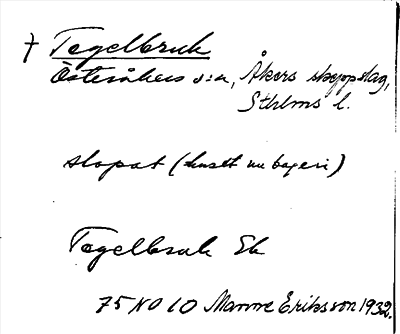 † Tegelbruk
Österåkers s:n, Åkers skeppslag,
Sthlms l.
slopat (huset nu bageri)
Tegelbruk Eb
75 NO 10 Manne Eriksson 1932.